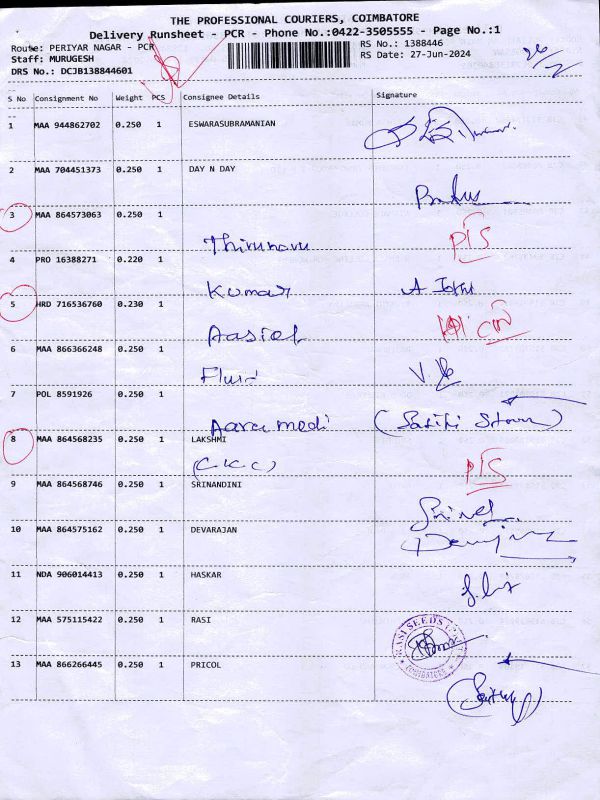 THE PROFESSIONAL COURIERS, COIMBATORE
Delivery Runsheet - PCR - Phone No.:0422-3505555 - Page No.:1
Route: PERIYAR NAGAR - PCR
RS No.: 1388446
Staff: MURUGESH
RS Date: 27-Jun-2024
DRS No.: DCJB138844601
S No Consignment No Weight PCS Consignee Details Signature
1 MAA 944862702 0.250 1 ESWARASUBRAMANIAN
2 MAA 704451373 0.250 1 DAY N DAY
3 MAA 864573063 0.250 1
4 PRO 16388271 0.220 1
Kumar
5 HRD 716536760 0.230 1
6 MAA 866366248 0.250 1
Fluid
7 POL 8591926 0.250 1
Aara medi
8 MAA 864568235 0.250 1 LAKSHMI
(CKC)
9 MAA 864568746 0.250 1 SRINANDINI
10 MAA 864575162 0.250 1 DEVARAJAN
11 NDA 906014413 0.250 1 HASKAR
12 MAA 575115422 0.250 1 RASI
RASI SEEDS
13 MAA 866266445 0.250 1 PRICOL